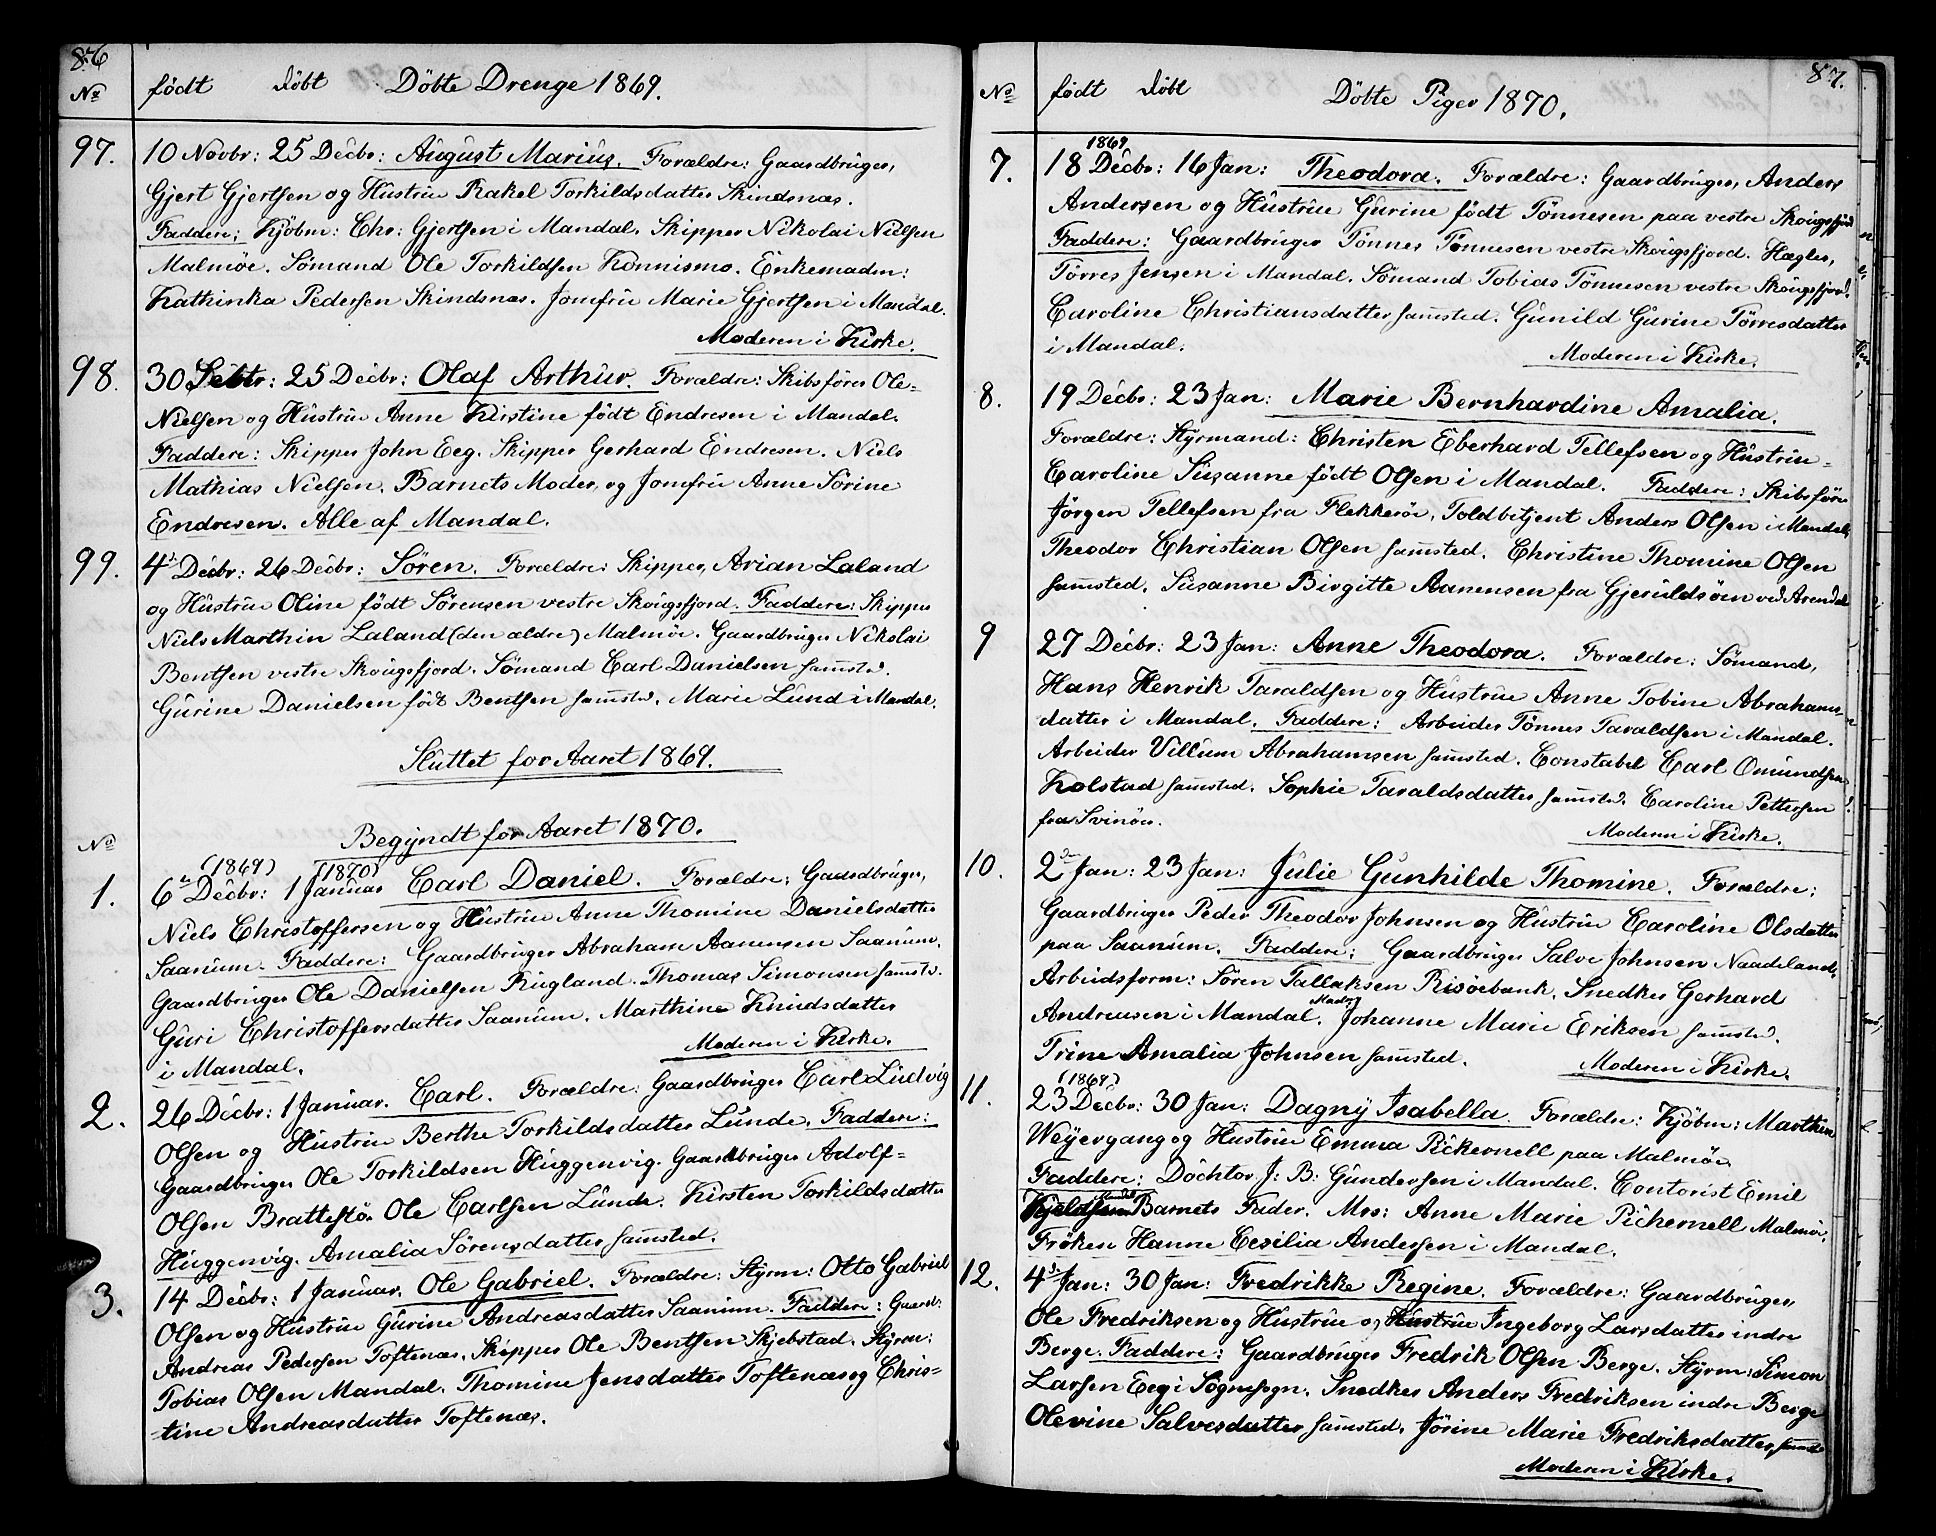 86
No født døbt Döbte Drenge 1869.
97. 10 Novbr: 25 Decbr: August Marius. Forældre: Gaardbruger,
Gjert Gjertsen og Hustru Rakel Torkildsdatter Skindsnæs.
Faddere: Kjöbm: Chr: Gjertsen i Mandal. Skipper Nikolai Nielsen
Malmöe. Sömand Ole Torkildsen Konnismo. Enkemadm:
Kathinka Pedersen Skindsnæs. Jomfru Marie Gjertsen i Mandal.
Moderen i Kirke.
98. 30 Septbr: 25 Decbr: Olaf Arthur. Forældre: Skibsfører Ole
Nielsen og Hustru Anne Kirstine født Endresen i Mandal.
Faddere: Skipper John Eeg. Skipper Gerhard Endresen. Niels
Mathias Nielsen. Barnets Moder, og Jomfru Anne Sörine
Endresen. Alle af Mandal.
99. 4de Decbr: 26 Decbr: Sören. Forældre: Skipper, Arian Laland
og Hustru Oline født Sörensen vestre Skougsfjord. Faddere: Skipper
Niels Marthin Laland (den ældre) Malmöe. Gaardbruger Nikolai
Bentsen vestre Skougsfjord. Sömand Carl Danielsen samsted.
Gurine Danielsen født Bentsen samsted. Marie Lund i Mandal.
Sluttet for Aaret 1869.
Begyndt for Aaret 1870.
No
(1869) (1870)
1. 6te Decbr: 1 Januar Carl Daniel. Forældre: Gaardbruger,
Niels Christoffersen og Hustru Anne Thomine Danielsdatter
Saanum. Faddere: Gaardbruger Abraham Aanensen Saanum.
Gaardbruger Ole Danielsen Rugland. Thomas Simonsen samsted.
Guri Christoffersdatter Saanum. Marthine Knudsdatter
i Mandal. Moderen i Kirke.
2. 26 Decbr: 1 Januar. Carl. Forældre: Gaardbruger Carl Ludvig
Olsen og Hustru Berthe Torkildsdatter Lunde. Faddere:
Gaardbruger Ole Torkildsen Huggenvig. Gaardbruger Adolf
Olsen Brattestö. Ole Carlsen Lunde. Kirsten Torkildsdatter
Huggenvig. Amalia Sörensdatter samsted.
3. 14 Decbr: 1 Januar. Ole Gabriel. Forældre: Styrm: Otto Gabriel
Olsen og Hustru Gurine Andreasdatter Saanum. Faddere: Gaardb:
Andreas Pedersen Toftenæs. Skipper Ole Bentsen Skjebstad. Styrm:
Tobias Olsen Mandal. Thomine Jensdatter Toftenæs og Chris-
tine Andreasdatter Toftenæs.
87.
No født døbt Döbte Piger 1870.
1869
7. 18 Decbr: 16 Jan: Theodora. Forældre: Gaardbruger, Anders
Andersen og Hustru Gurine født Tönnesen paa vestre Skougsfjord
Faddere: Gaardbruger Tönnes Tönnesen vestre Skougsfjord. Hægler,
Törres Jensen i Mandal. Sömand Tobias Tönnesen vestre Skougsfjord.
Caroline Christiansdatter samsted. Gunild Gurine Törresdatter
i Mandal. Moderen i Kirke.
8. 19 Decbr: 23 Jan: Marie Bernhardine Amalia.
Forældre: Styrmand: Christen Eberhard Tellefsen og Hustru
Caroline Susanne født Olsen i Mandal. Faddere: Skibsfører
Jörgen Tellefsen fra Flekkeröe. Toldbetjent Anders Olsen i Mandal.
Theodor Christian Olsen samsted. Christine Thomine Olsen
samsted. Susanne Birgitte Aanensen fra Gjeruldsöen ved Arendal
9 27 Decbr: 23 Jan: Anne Theodora. Forældre: Sömand,
Hans Henrik Taraldsen og Hustru Anne Tobine Abrahams-
datter i Mandal. Faddere: Arbeider Tönnes Taraldsen i Mandal.
Arbeider Villum Abrahamsen samsted. Constabel Carl Omundsen
Kolstad samsted. Sophie Taraldsdatter samsted. Caroline Pettersen
fra Svinöer. Moderen i Kirke.
10. 2den Jan: 23 Jan: Julie Gunhilde Thomine. Forældre:
Gaardbruger Peder Theodor Johnsen og Hustru Caroline Olsdatter
paa Saanum. Faddere: Gaardbruger Salve Johnsen Naadeland.
Arbeidsform: Sören Tallaksen Risöebank. Snedker Gerhard
Andreasen i Mandal. Madm Johanne Marie Eriksen samsted.
Trine Amalia Johnsen samsted. Moderen i Kirke.
(1869)
11. 23 Decbr: 30 Jan: Dagny Isabella. Forældre: Kjöbm: Marthin
Weyergang og Hustru Emma Pickernell paa Malmöe.
Faddere: Dochtor J: B: Gundersen i Mandal. Contorist Emil
Barnets Fader. Mrs: Anne Marie Pickernell Malmöe.
Fröken Hanne Cecilia Andersen i Mandal.
12. 4de Jan: 30 Jan: Fredrikke Regine. Forældre: Gaardbruger,
Ole Fredriksen og Hustru og Hustru Ingeborg Larsdatter indre
Berge. Faddere: Gaardbruger Fredrik Olsen Berge. Styrm: Simon
Larsen Eeg i Sögnesogn. Snedker Anders Fredriksen indre Berge
Olevine Salvesdatter samsted. Jörine Marie Fredriksdatter, samsted
Moderen i Kirke.